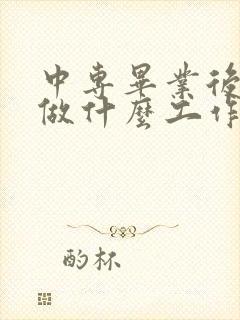 中專畢業後
做什麼工作
酌杯